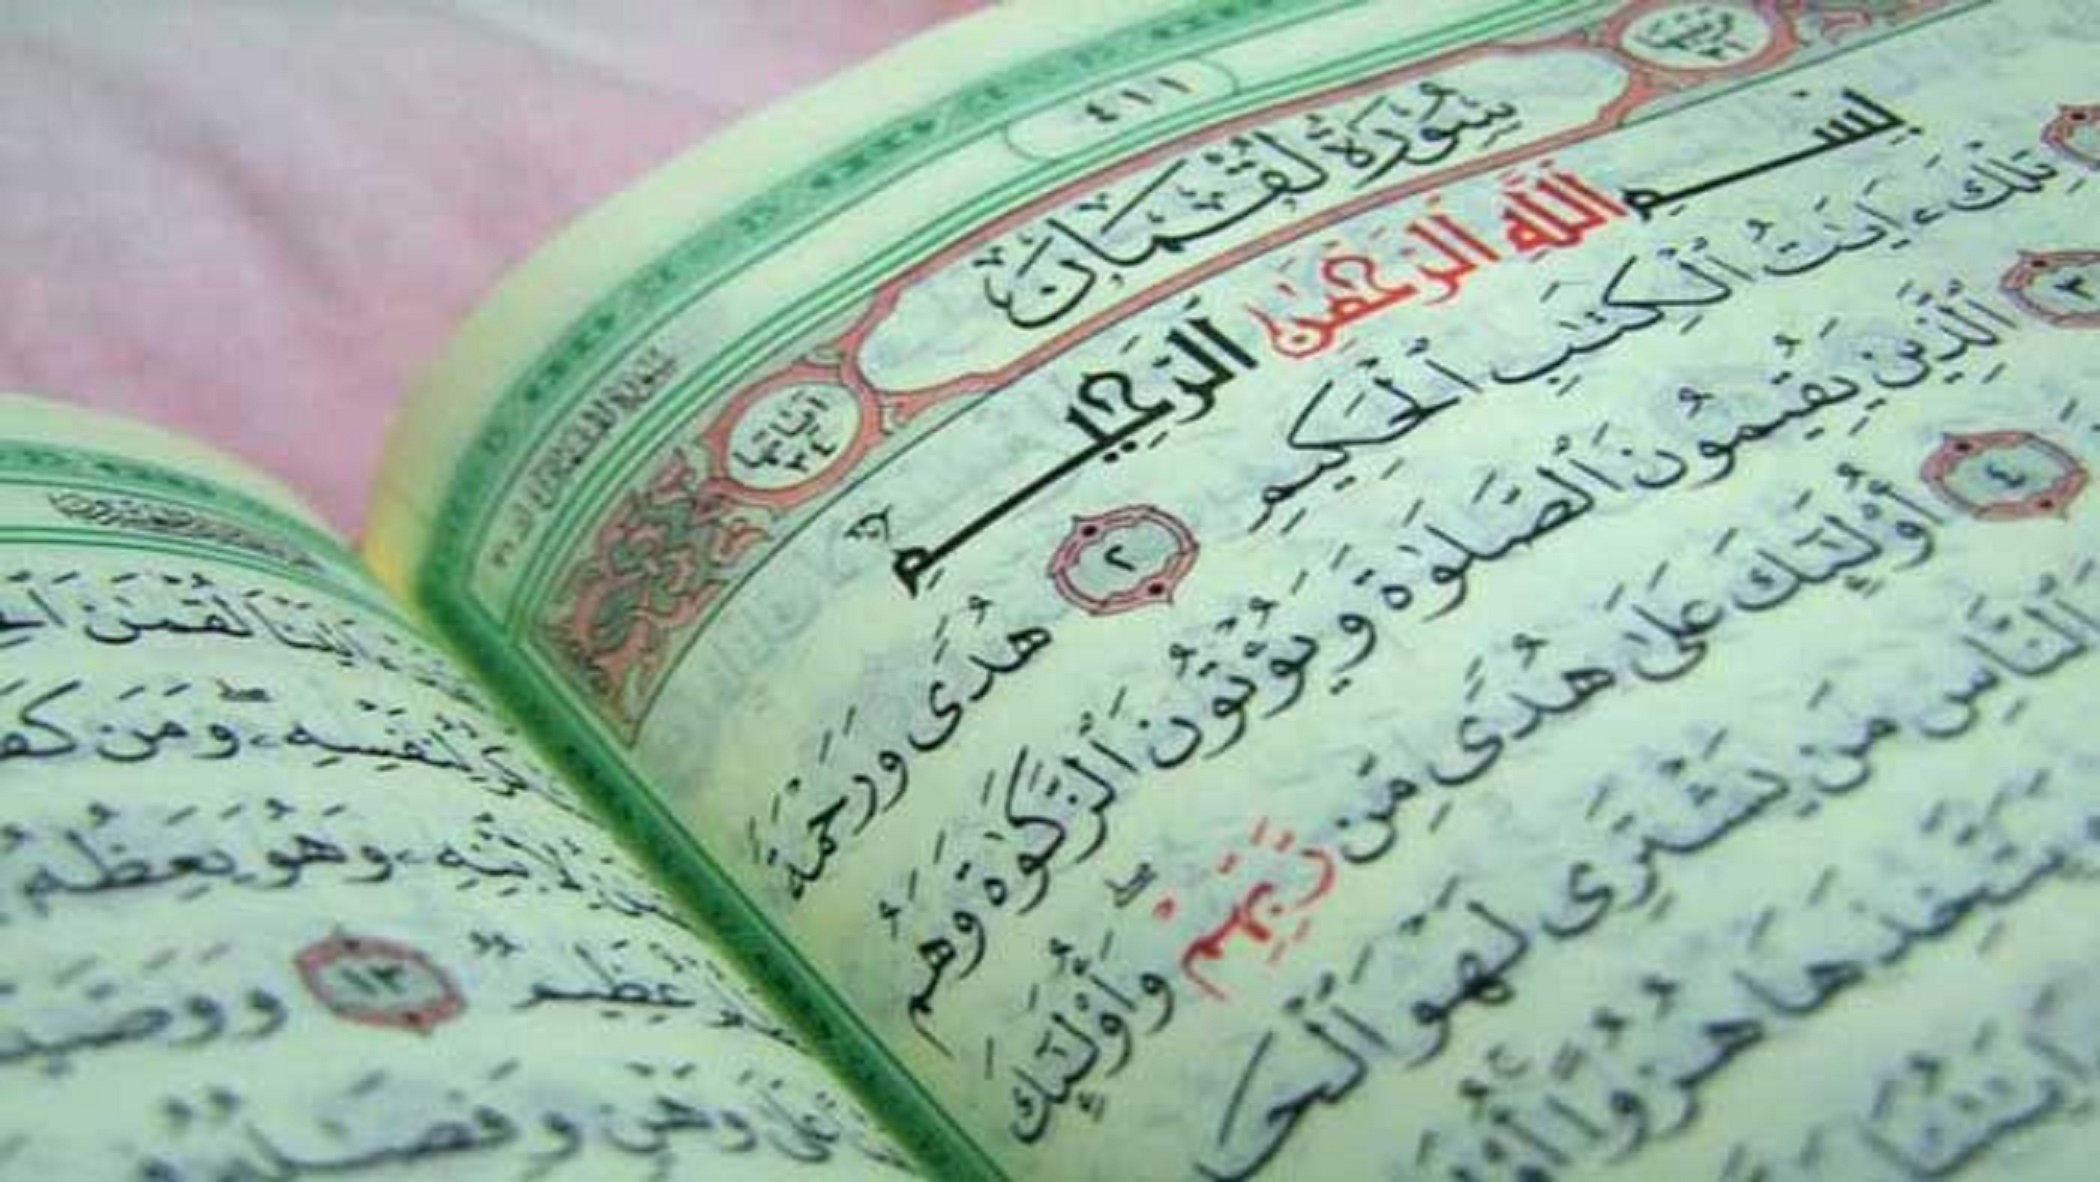 ٤١١
سُورَةُ لُقْمَانَ
آيَاتُهَا ٣٤
بِسْمِ ٱللَّهِ ٱلرَّحْمَٰنِ ٱلرَّحِيمِ
تِلْكَ ءَايَٰتُ ٱلْكِتَٰبِ ٱلْحَكِيمِ ٢ هُدًى وَرَحْمَةً
٣ ٱلَّذِينَ يُقِيمُونَ ٱلصَّلَوٰةَ وَيُؤْتُونَ ٱلزَّكَوٰةَ وَهُم
٤ أُو۟لَٰٓئِكَ عَلَىٰ هُدًى مِّن رَّبِّهِمْ ۖ وَأُو۟لَٰٓئِكَ
ٱلنَّاسِ مَن يَشْتَرِى لَهْوَ ٱلْحَ
هَا هُزُوًا ۚ أُو۟
لُقْمَٰنَ
لِنَفْسِهِۦ ۖ وَمَن كَفَ
لِٱبْنِهِۦ وَهُوَ يَعِظُهُۥ
عَظِيمٌ ١٣ وَوَصَّيْ
عَلَىٰ وَهْنٍ وَفِصَٰلُهُۥ